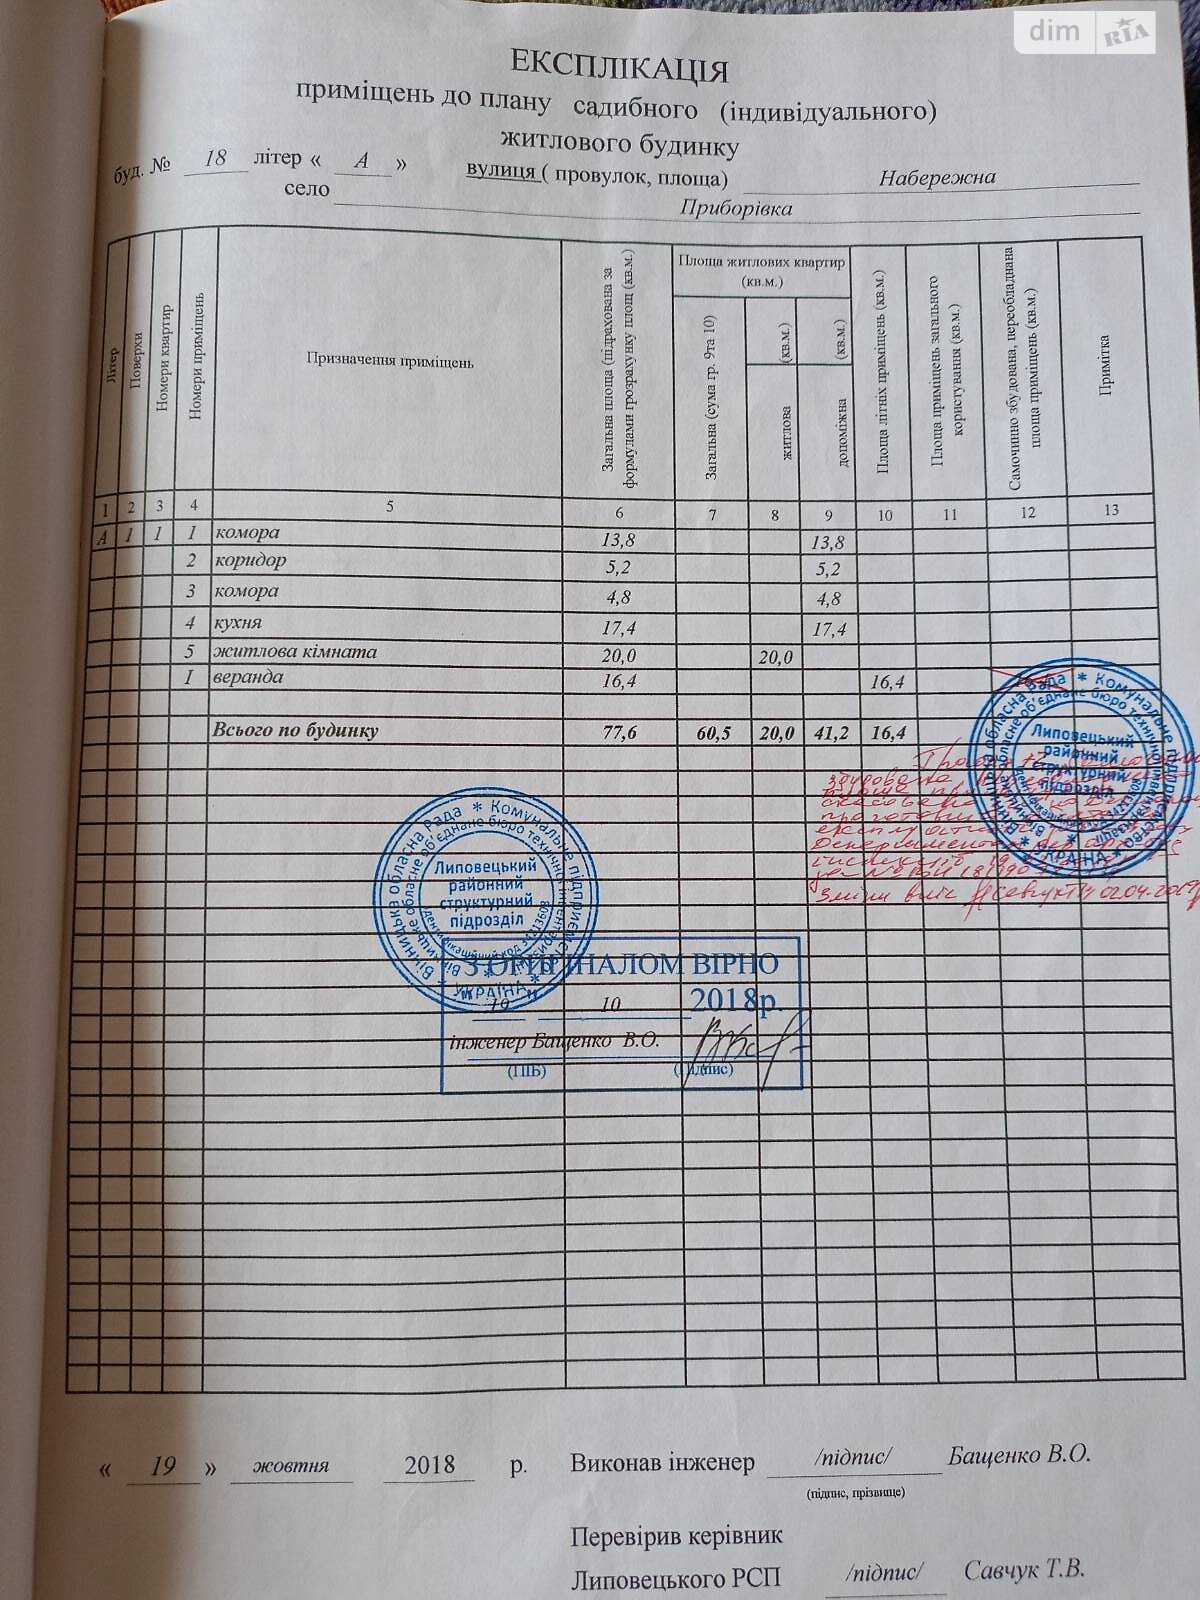 dim RIA
ЕКСПЛІКАЦІЯ
приміщень до плану садибного (індивідуального)
житлового будинку
буд. № 18 літер « А » вулиця ( провулок, площа) Набережна
село Приборівка
Літер
Поверхи
Номери квартир
Номери приміщень
Призначення приміщень
Загальна площа (підрахована за
формулами грозрахунку площ (кв.м.)
Площа житлових квартир
(кв.м.)
Загальна (сума гр. 9та 10)
(кв.м.)
житлова
(кв.м.)
допоміжна
Площа літніх приміщень (кв.м.)
Площа приміщень загального
користування (кв.м.)
Самочинно збудована, переобладнана
площа приміщень (кв.м.)
Примітка
1 2 3 4 5 6 7 8 9 10 11 12 13
А 1 1 1 комора 13,8 13,8
2 коридор 5,2 5,2
3 комора 4,8 4,8
4 кухня 17,4 17,4
5 житлова кімната 20,0 20,0
I веранда 16,4 16,4
Всього по будинку 77,6 60,5 20,0 41,2 16,4
Вінницька обласна Рада * Комунальне підприємство * УКРАЇНА *
Вінницьке обласне об'єднане бюро технічної інвентаризації
Липовецький
районний
структурний
підрозділ
Ідентифікаційний код 34213608
Вінницька обласна Рада * Комунальне підприємство * УКРАЇНА *
Липовецький
районний
структурний
підрозділ
збудована
скасована
02.04.2019
З ОРИГІНАЛОМ ВІРНО
10 10 2018р.
інженер Бащенко В.О.
(ПІБ) (підпис)
« 19 » жовтня 2018 р. Виконав інженер /підпис/ Бащенко В.О.
(підпис, прізвище)
Перевірив керівник
Липовецького РСП /підпис/ Савчук Т.В.